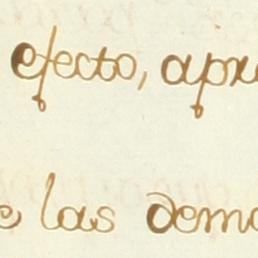 efecto, apr
e las dema